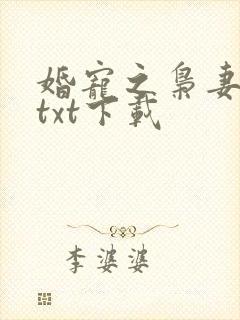 婚寵之梟妻
txt下載
李婆婆